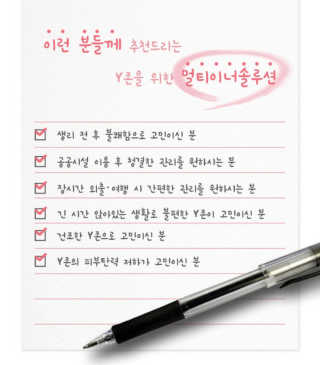 이런 분들께 추천드리는
Y존을 위한 멀티이너솔루션
생리 전 후 불쾌함으로 고민이신 분
공공시설 이용 후 청결한 관리를 원하시는 분
장시간 외출·여행 시 간편한 관리를 원하시는 분
긴 시간 앉아있는 생활로 불편한 Y존이 고민이신 분
건조한 Y존으로 고민이신 분
Y존의 피부탄력 저하가 고민이신 분